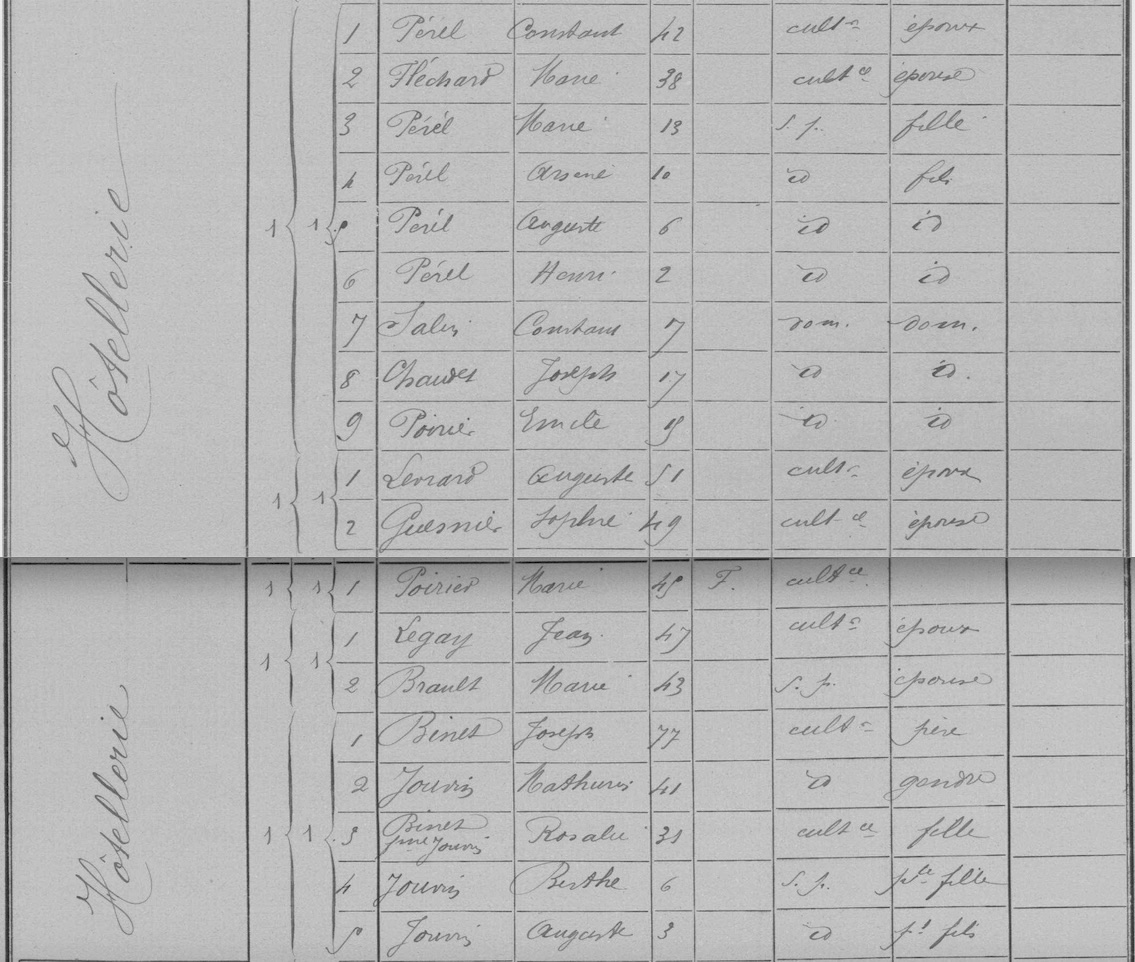 Hôtellerie
1 1
1 Pérel Constant 42 cultr époux
2 Fléchard Marie 38 cultce épouse
3 Pérel Marie 13 s. p. fille
4 Pérel Arsène 10 id fils
5 Pérel Auguste 6 id id
6 Pérel Henri 2 id id
7 Constant dom. dom.
8 Joseph 17 id id.
9 Poirier id id
1 1
1 Auguste 51 cultr époux
2 Guesnier Sophie 49 cultce épouse
Hôtellerie
1 1
1 Poirier Marie 45 F. cultce
1 1
1 Legay Jean 47 cultr époux
2 Brault Marie 43 s. p. épouse
1 1
1 Binet Joseph 77 cultr père
2 Jouvin Mathurin 41 id gendre
3 Binet fme Jouvin Rosalie 31 cultce fille
4 Jouvin Berthe 6 s. p. pte fille
5 Jouvin Auguste 3 id pt fils